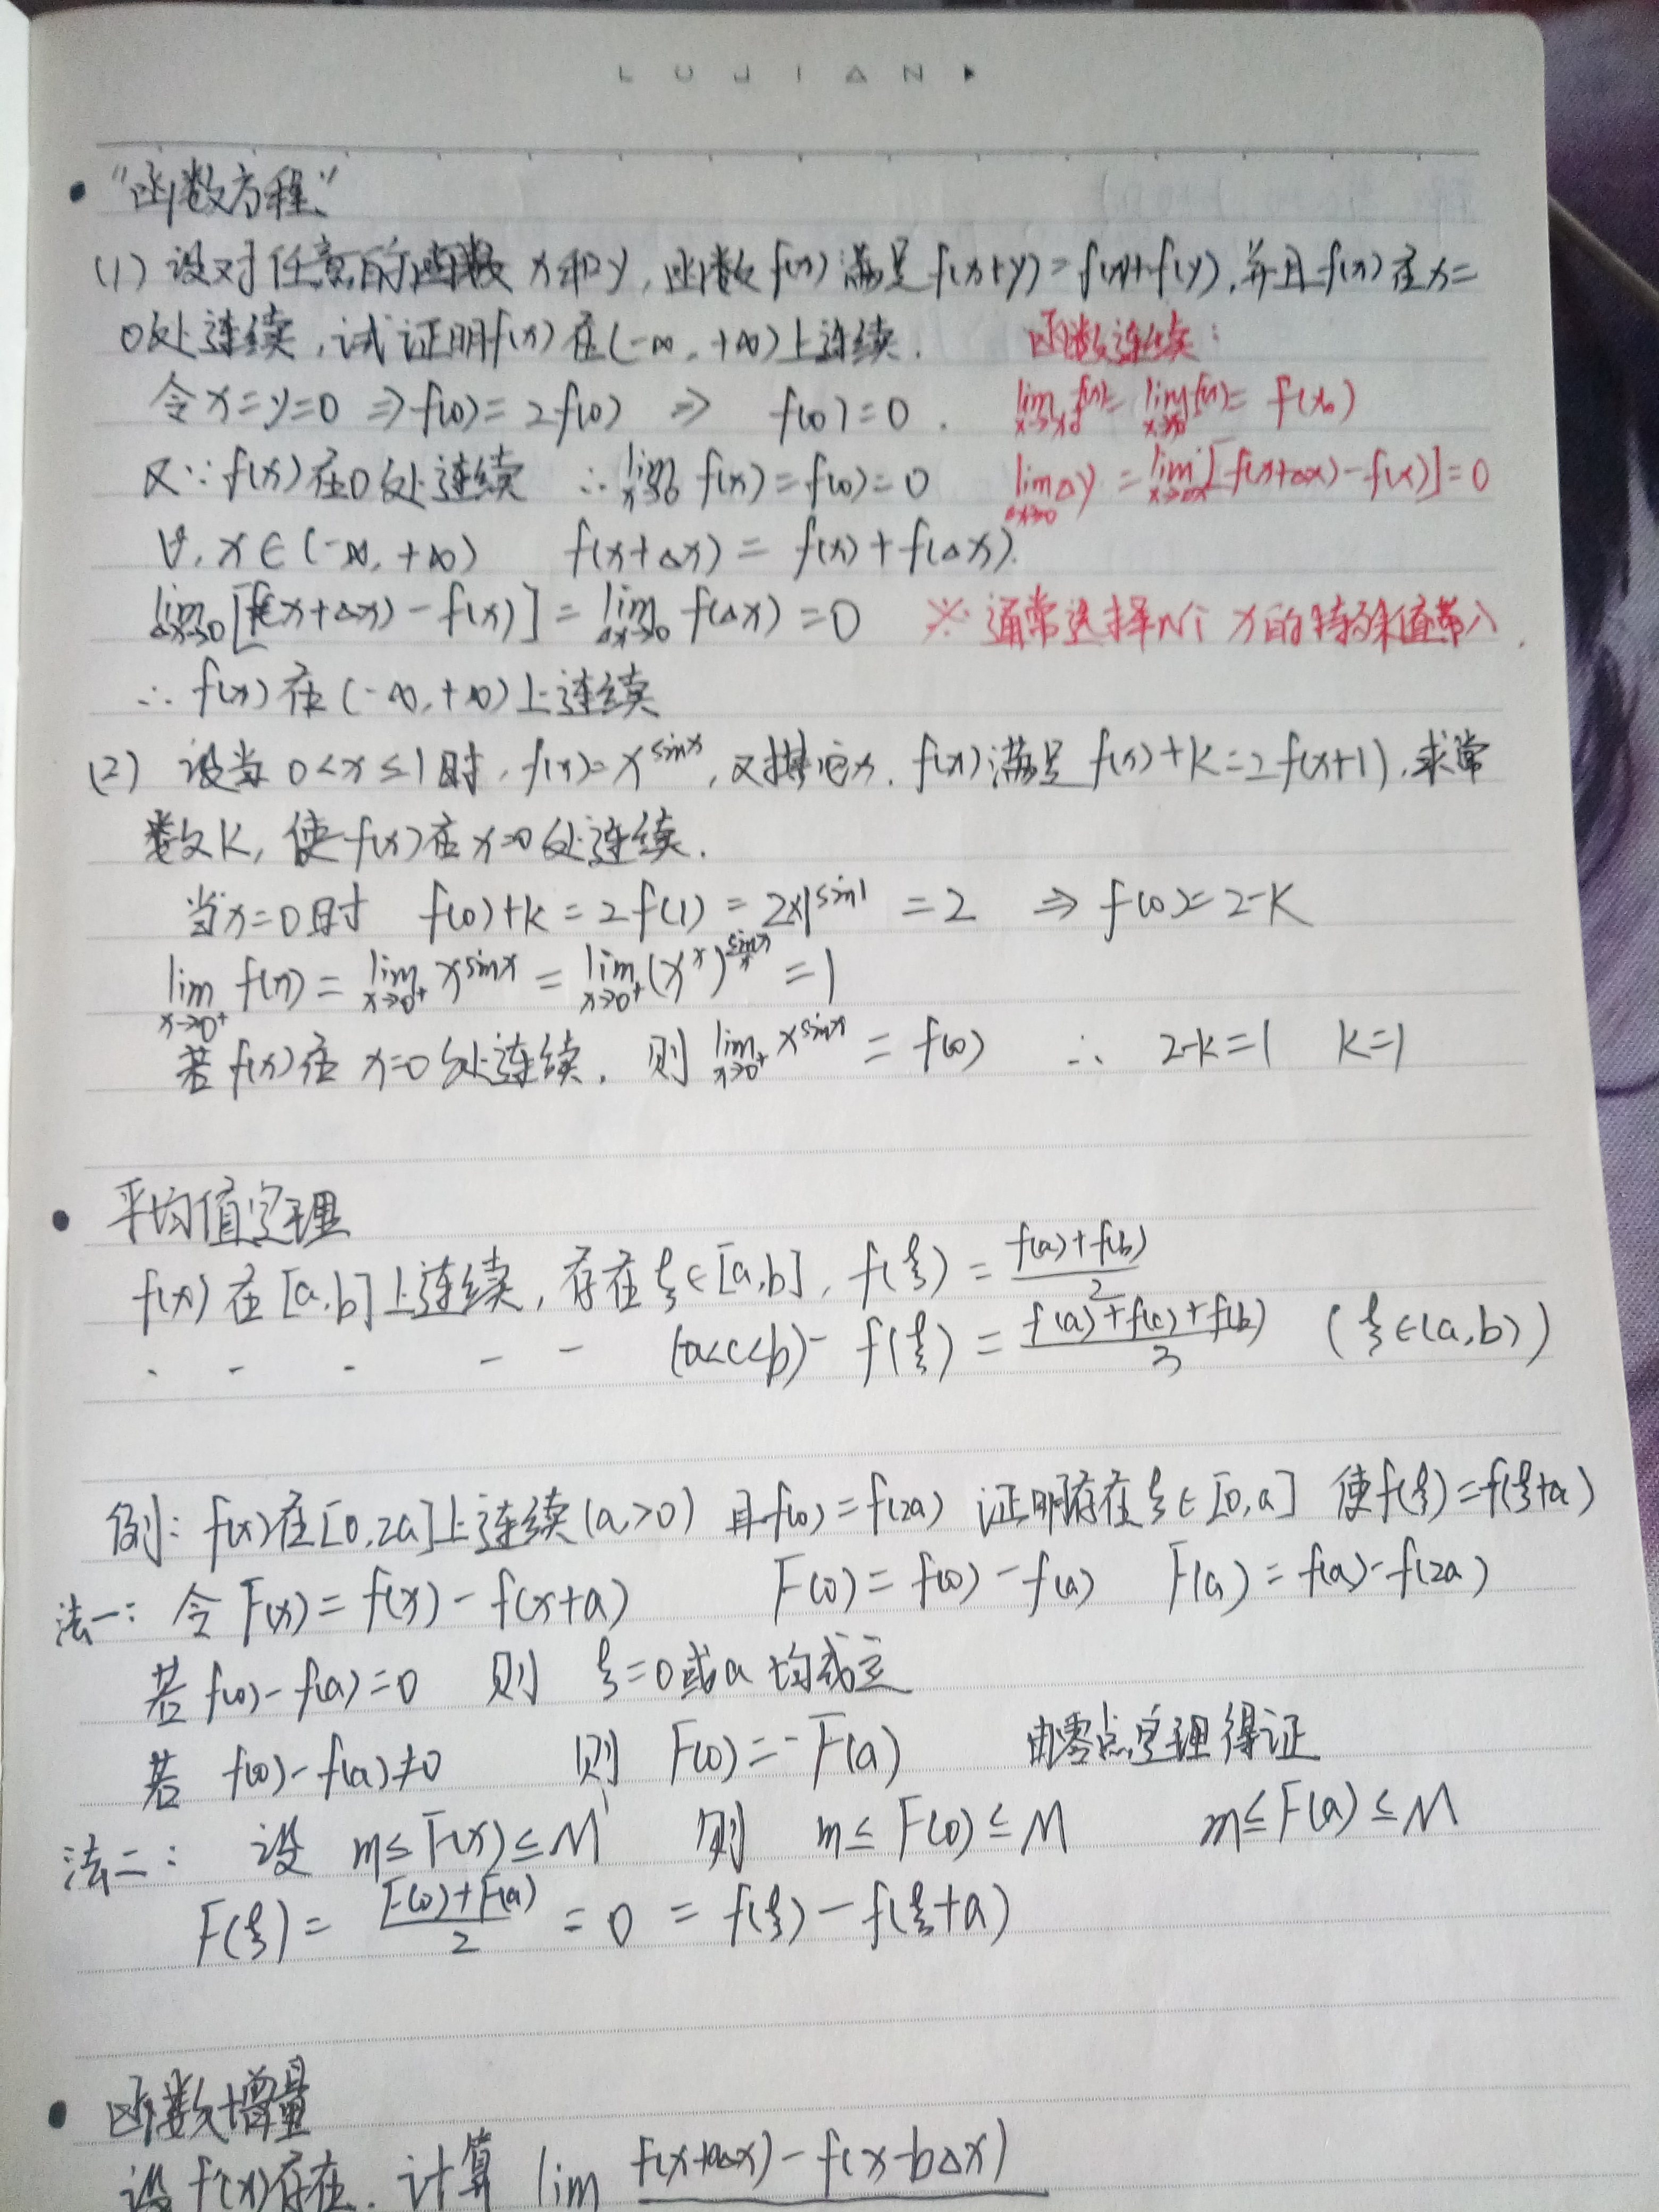 LUJIAN
• "函数方程"
(1) 设对任意的函数 x和y, 函数f(x)满足f(x+y)=f(x)+f(y), 并且f(x)在x=
0处连续, 试证明f(x)在(-∞, +∞)上连续. 函数连续:
令x=y=0 ⇒ f(0)=2f(0) ⇒ f(0)=0. lim f(x) = lim f(x) = f(x₀)
又∵f(x)在0处连续 ∴ lim_{x→0} f(x)=f(0)=0 lim_{Δx→0} Δy = lim [f(x+Δx)-f(x)]=0
∀, x∈(-∞, +∞) f(x+Δx)=f(x)+f(Δx).
lim_{Δx→0} [f(x+Δx)-f(x)] = lim_{Δx→0} f(Δx)=0 ※ 通常选择N个 x的特殊值带入.
∴ f(x)在(-∞,+∞)上连续
(2) 设当 0<x≤1时, f(x)=x^{sinx}, 又其它x, f(x)满足 f(x)+k=2f(x+1), 求常
数k, 使f(x)在x=0处连续.
当x=0时 f(0)+k=2f(1)=2×1^{sin1}=2 ⇒ f(0)=2-k
lim_{x→0⁺} f(x) = lim_{x→0⁺} x^{sinx} = lim_{x→0⁺} (x^x)^{sinx/x} = 1
若f(x)在 x=0处连续, 则 lim_{x→0⁺} x^{sinx} = f(0) ∴ 2-k=1 k=1
• 平均值定理
f(x)在[a,b]上连续, 存在ξ∈[a,b], f(ξ)=\frac{f(a)+f(b)}{2}
- - - - - (a<c<b) - f(ξ)=\frac{f(a)+f(c)+f(b)}{3} (ξ∈(a,b))
例: f(x)在[0,2a]上连续(a>0) 且f(0)=f(2a) 证明存在ξ∈[0,a] 使f(ξ)=f(ξ+a)
法一: 令F(x)=f(x)-f(x+a) F(0)=f(0)-f(a) F(a)=f(a)-f(2a)
若f(0)-f(a)=0 则 ξ=0或a 均成立
若 f(0)-f(a)≠0 则 F(0)=-F(a) 由零点定理得证
法二: 设 m≤F(x)≤M 则 m≤F(0)≤M m≤F(a)≤M
F(ξ)=\frac{F(0)+F(a)}{2}=0=f(ξ)-f(ξ+a)
• 函数增量
设f'(x)存在. 计算 lim f(x+aΔx)-f(x-bΔx)